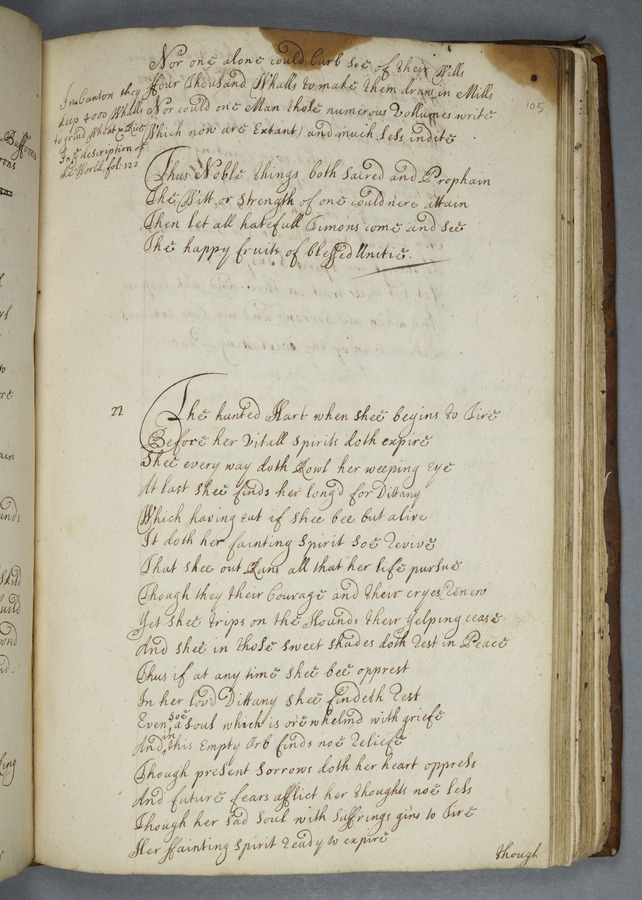 105
Nor one alone could Curb soe of their Wills
ffour Thousand Whalls to make them draw in Mills
Nor could one Man those numerous Vollumes write
Which now are Extant, and much less indite
In Canton they
keep 4000 Whalls
to grind Wheat & Rice
In ye description of
the World fol: 122
Thus Noble things both Sacred and Prophain
The Witt, or Strength of one could nere attain
Then let all hatefull Timons come and see
The happy fruits of blessed Unitie.
22
The hunted Hart when shee begins to Tire
Before her Vitall Spirits doth expire
Shee every way doth Rowl her weeping Eye
At last shee finds her long'd for Dittany
Which having eat if shee bee but alive
It doth her fainting Spirit soe Revive
That shee out Runs all that her life pursue
Though they their Courage and their cryes Renew
Yet shee trips on the Hounds their Yelping cease
And shee in those sweet shades doth rest in Peace
Thus if at any time shee bee opprest
In her lov'd Dittany shee findeth rest
Even soe a Soul which is o'rewhelmd with griefe
And in this Empty Orb finds noe reliefe
Though present Sorrows doth her heart oppress
And future fears afflict her thoughts noe less
Though her sad Soul with Suffrings gins to Tire
Her ffainting Spirit ready to expire
though